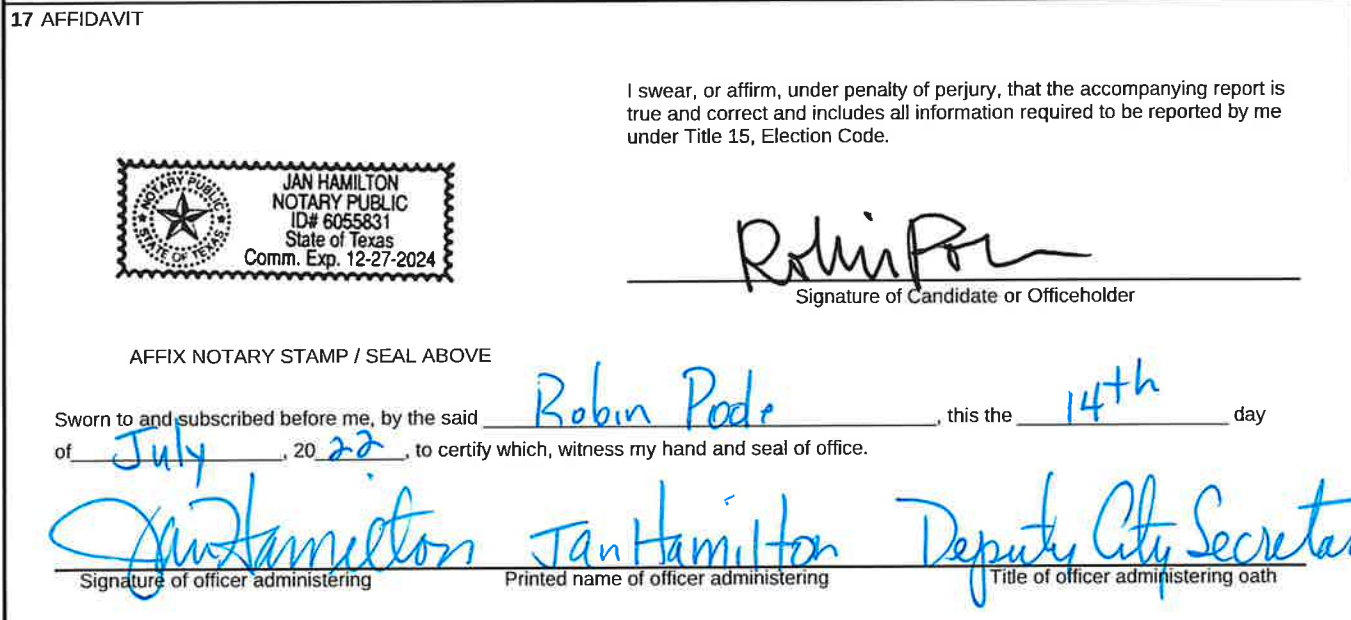 17 AFFIDAVIT
I swear, or affirm, under penalty of perjury, that the accompanying report is
true and correct and includes all information required to be reported by me
under Title 15, Election Code.
NOTARY PUBLIC
STATE OF TEXAS
JAN HAMILTON
NOTARY PUBLIC
ID# 6055831
State of Texas
Comm. Exp. 12-27-2024
Robin
Signature of Candidate or Officeholder
AFFIX NOTARY STAMP / SEAL ABOVE
Sworn to and subscribed before me, by the said Robin , this the 14th day
of July , 20 22 , to certify which, witness my hand and seal of office.
Jan Hamilton Jan Hamilton Deputy City Secretar
Signature of officer administering Printed name of officer administering Title of officer administering oath